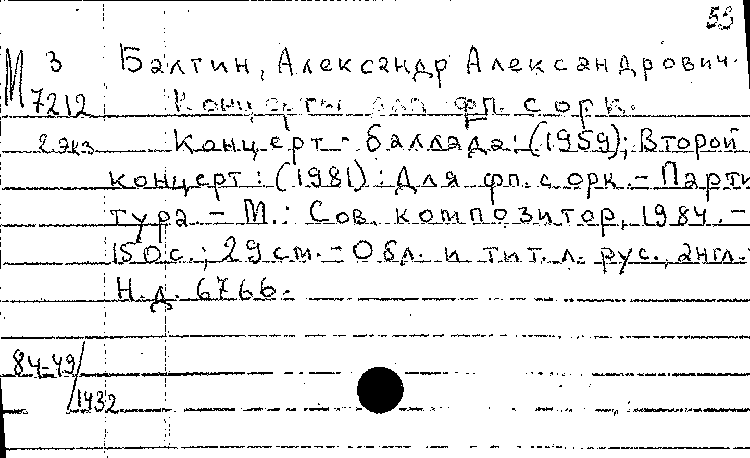 53
М 3 Балтин, Александр Александрович.
7212 Концерты для фп. с орк.
2 экз Концерт-баллада: (1959); Второй
концерт: (1981): Для фп. с орк. - Парти
тура - М.: Сов. композитор, 1984. -
150 с.; 29 см. - Обл. и тит. л. рус., англ.
Н.д. 6766.
84-49/
1432